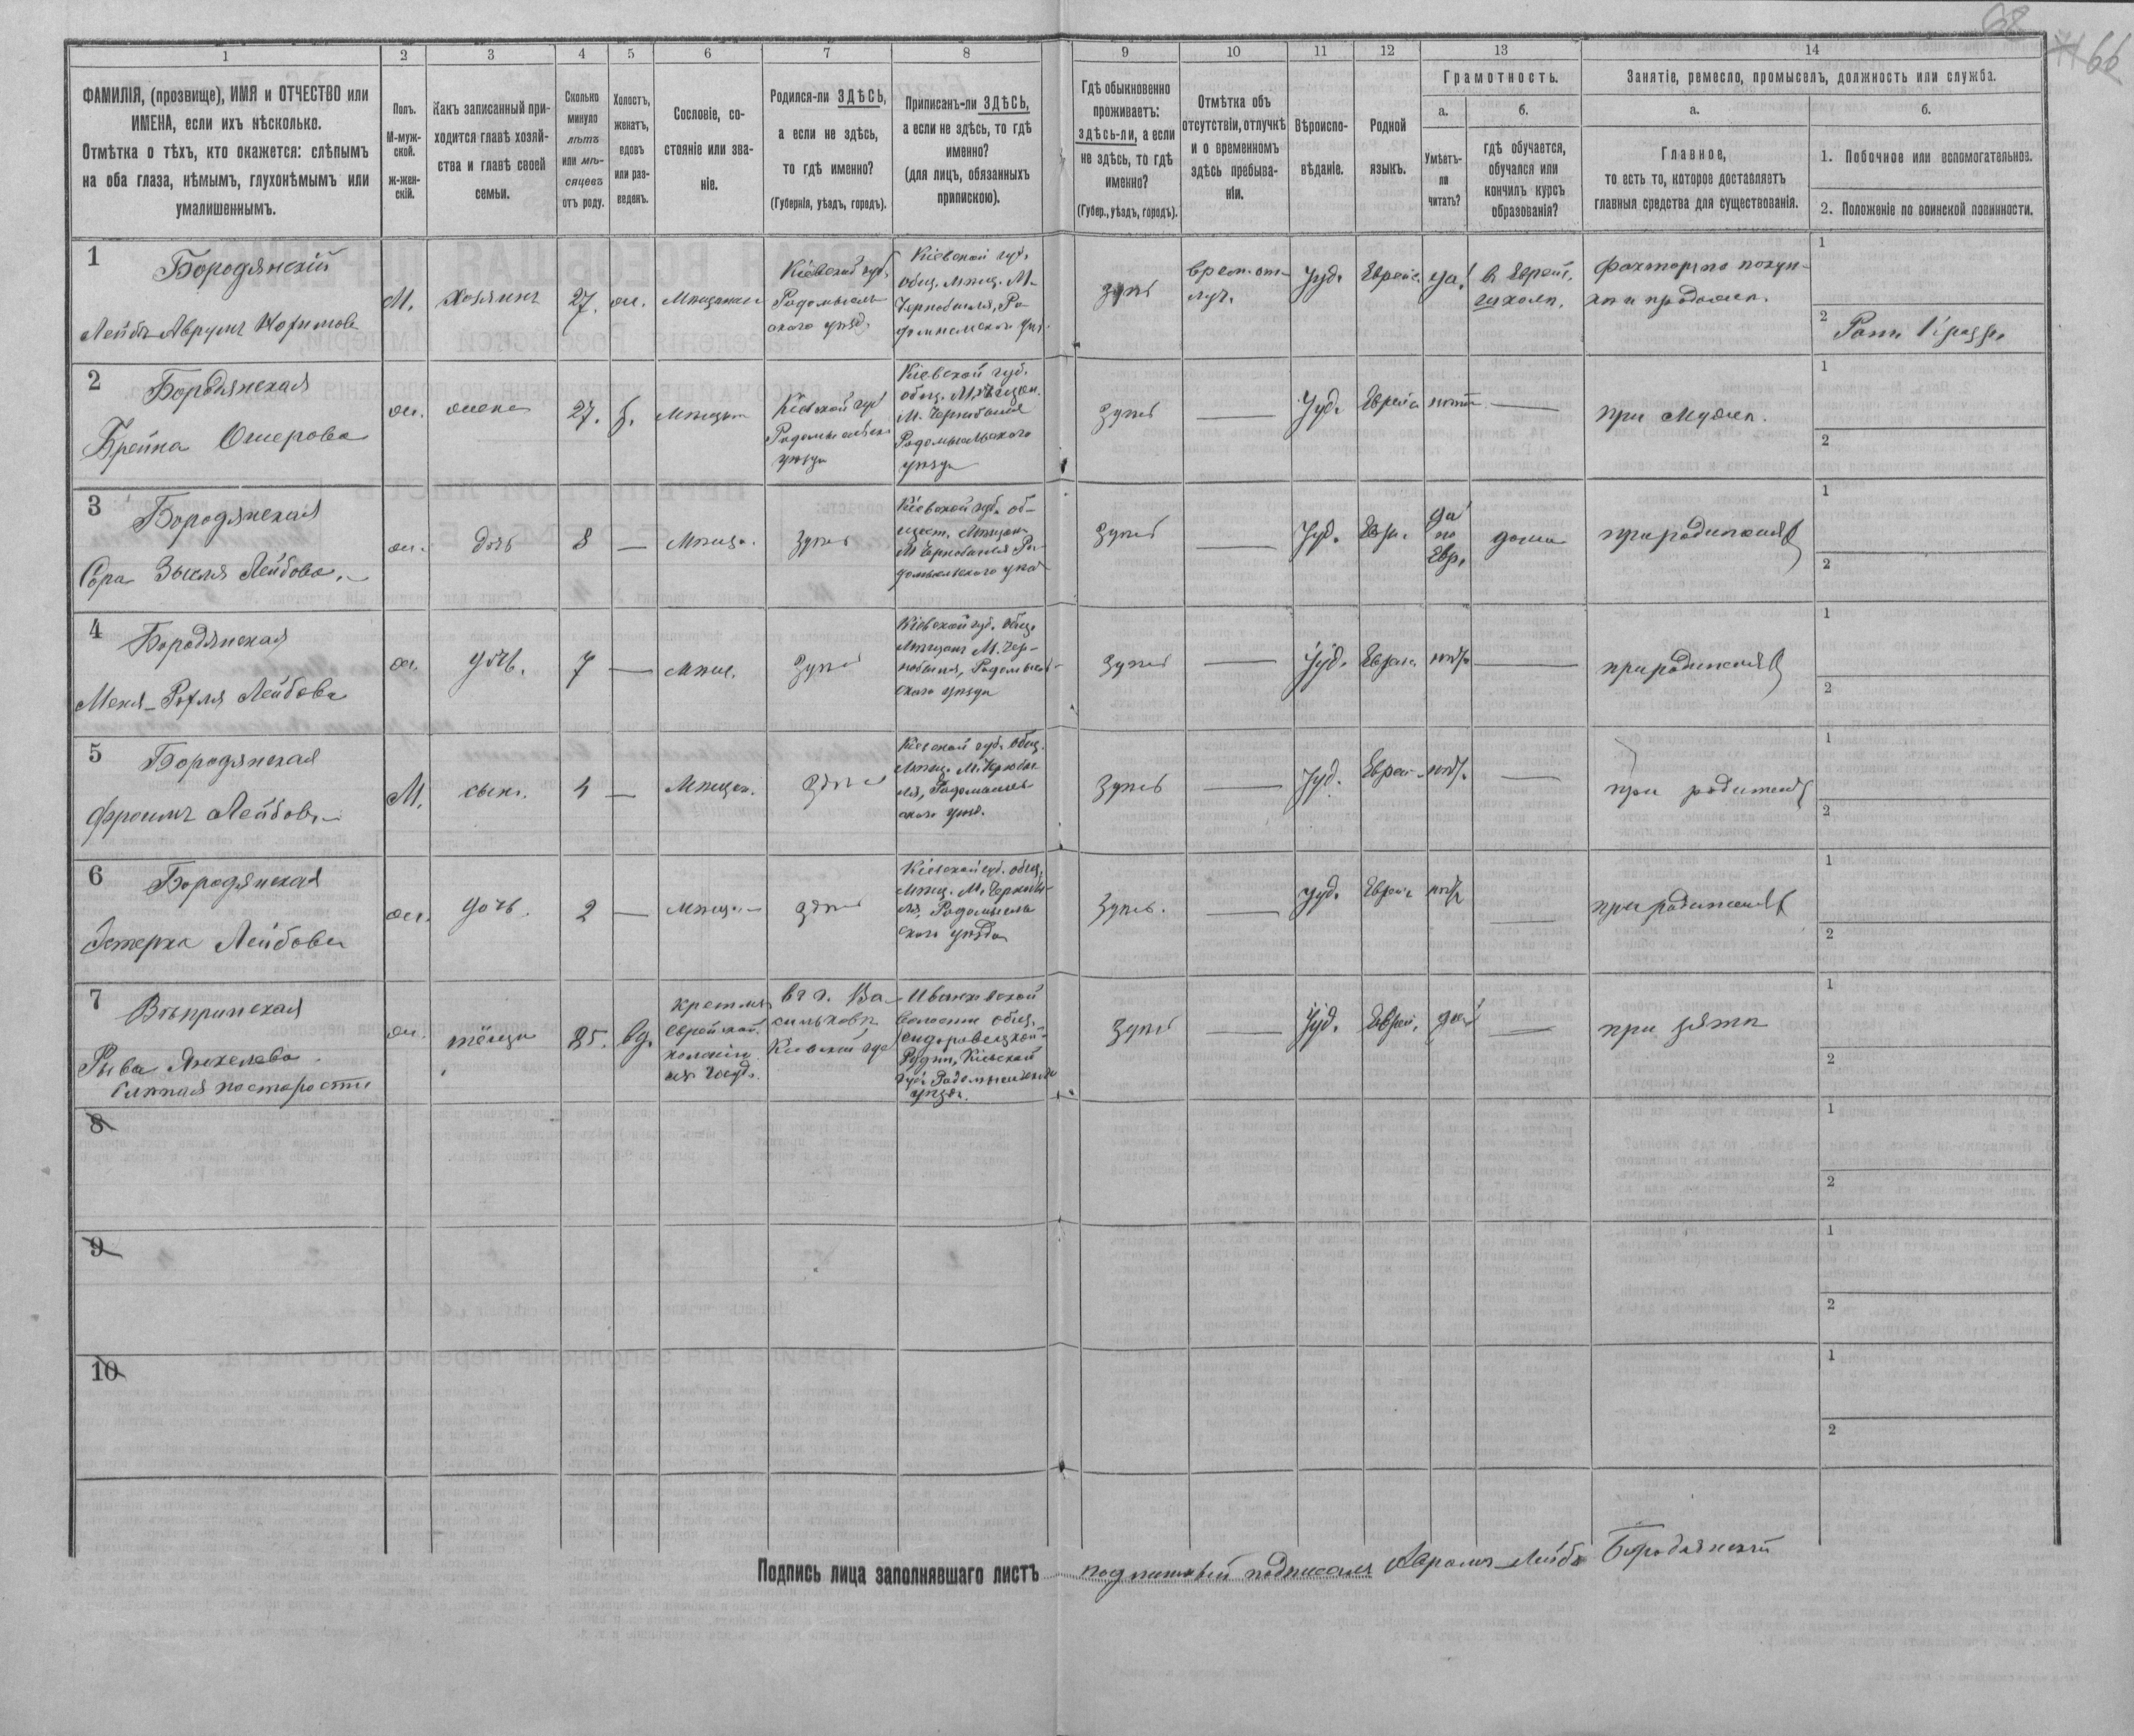 68
66
1
2
3
4
5
6
7
8
9
10
11
12
13
14
ФАМИЛІЯ, (прозвище), ИМЯ и ОТЧЕСТВО или
ИМЕНА, если ихъ нѣсколько.
Отмѣтка о тѣхъ, кто окажется: слѣпымъ
на оба глаза, нѣмымъ, глухонѣмымъ или
умалишеннымъ.
Полъ.
М-муж-
ской.
Ж-жен-
скій.
Какъ записанный при-
ходится главѣ хозяй-
ства и главѣ своей
семьи.
Сколько
минуло
лѣтъ
или мѣ-
сяцевъ
отъ роду.
Холостъ,
женатъ,
вдовъ
или раз-
веденъ.
Сословіе, со-
стояніе или зва-
ніе.
Родился-ли ЗДѢСЬ,
а если не здѣсь,
то гдѣ именно?
(Губернія, уѣздъ, городъ).
Приписанъ-ли ЗДѢСЬ,
а если не здѣсь, то гдѣ
именно?
(для лицъ, обязанныхъ
припискою).
Гдѣ обыкновенно
проживаетъ:
здѣсь-ли, а если
не здѣсь, то гдѣ
именно?
(Губер., уѣздъ, городъ).
Отмѣтка объ
отсутствіи, отлучкѣ
и о временномъ
здѣсь пребыва-
ніи.
Вѣроиспо-
вѣданіе.
Родной
языкъ.
Грамотность.
а.
Умѣетъ-
ли
читать?
б.
гдѣ обучается,
обучался или
кончилъ курсъ
образованія?
Занятіе, ремесло, промыселъ, должность или служба.
а.
Главное,
то есть то, которое доставляетъ
главныя средства для существованія.
б.
1. Побочное или вспомогательное.
2. Положеніе по воинской повинности.
1
Бородянскій
Лейбъ-Аврумъ
М.
хозяинъ
27.
ж.
Мѣщанинъ
Кіевской губ.
Радомысль-
скаго уѣзд.
Кіевской губ.
общ. мѣщ. М.
Чернобыля, Ра-
здѣсь
врем. от-
луч.
Іуд.
Еврейс.
да
в Еврейс.
Факторъ по покуп-
кѣ и продажѣ.
1
2
2
Бородянская
Брейна Ошерова
ж.
жена
27.
з.
Мѣщан
Кіевской губ
Радомысльск
уѣзда
Кіевской губ.
общ. Мѣщан.
М. Чернобыля
Радомысльскаго
уѣзда
здѣсь
Іуд.
Еврейс
нѣтъ
при мужѣ.
1
2
3
Бородянская
Сора Зысля Лейбова.
ж.
дочь
8
Мѣща.
здѣсь
Кіевской губ. об-
щест. Мѣщан
М Чернобыля Ра-
домысльскаго уѣз
здѣсь
Іуд.
Евр.
да
по
Евр.
дома
при родителяхъ
1
2
4
Бородянская
Лейбова
ж.
дочь.
7
Мѣщ.
здѣсь
Кіевской губ. общ.
Мѣщанъ М. Чер-
нобыля, Радомысль-
скаго уѣзда
здѣсь
Іуд.
Еврейс.
нѣтъ
при родителяхъ
1
2
5
Бородянская
Фроимъ Лейбовъ
М.
сынъ.
4
Мѣщан.
здѣсь
Кіевской губ. общ.
Мѣщ. М. Чернобы
ля, Радомысль
скаго уѣзд.
здѣсь
Іуд.
Еврей
нѣтъ.
при родителяхъ
1
2
6
Бородянская
Эстерка Лейбова
ж.
дочь.
2
Мѣщан
здѣсь
Кіевской губ. общ.
Мѣщ. М. Чернобы-
ля, Радомысль
скаго уѣзда
здѣсь.
Іуд.
Еврей.
нѣтъ
при родителяхъ
1
2
7
Вѣпринская
Рыва Янкелева
Слѣпая по старости
ж.
тёща
85.
вд.
въ г. Ва-
сильковѣ
Кіевской губ
Иванковской
Волости общ.
Кіевской
губ. Радомысльска
уѣзда.
здѣсь
Іуд.
Еврей.
да
при зятѣ
1
2
8
1
2
9
1
2
10
1
2
Подпись лица заполнявшаго листъ
подписалъ Аврамъ-Лейбъ Бородянскій